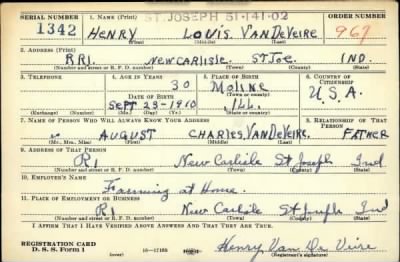 SERIAL NUMBER 1. NAME (Print) ST. JOSEPH 51-141-02 ORDER NUMBER
1342 HENRY LOUIS VANDEVEIRE 967
(First) (Middle) (Last)
2. ADDRESS (Print)
RR1. NEW CARLISLE. ST JOE. IND.
(Number and street or R. F. D. number) (Town) (County) (State)
3. TELEPHONE 4. AGE IN YEARS 5. PLACE OF BIRTH 6. COUNTRY OF CITIZENSHIP
30 MOLINE
DATE OF BIRTH (Town or county) U.S.A.
SEPT 23-1910 ILL.
(Exchange) (Number) (Mo.) (Day) (Yr.) (State or country)
7. NAME OF PERSON WHO WILL ALWAYS KNOW YOUR ADDRESS 8. RELATIONSHIP OF THAT PERSON
AUGUST CHARLES VANDEVEIRE FATHER
(Mr., Mrs., Miss) (First) (Middle) (Last)
9. ADDRESS OF THAT PERSON
R1 New Carlisle St Joseph Ind
(Number and street or R. F. D. number) (Town) (County) (State)
10. EMPLOYER'S NAME
Farming at Home.
11. PLACE OF EMPLOYMENT OR BUSINESS
R1 New Carlisle St Joseph Ind
(Number and street or R. F. D. number) (Town) (County) (State)
I AFFIRM THAT I HAVE VERIFIED ABOVE ANSWERS AND THAT THEY ARE TRUE.
REGISTRATION CARD
D. S. S. Form 1 (over) 16—17105 Henry Van De Veire
(Registrant's signature)